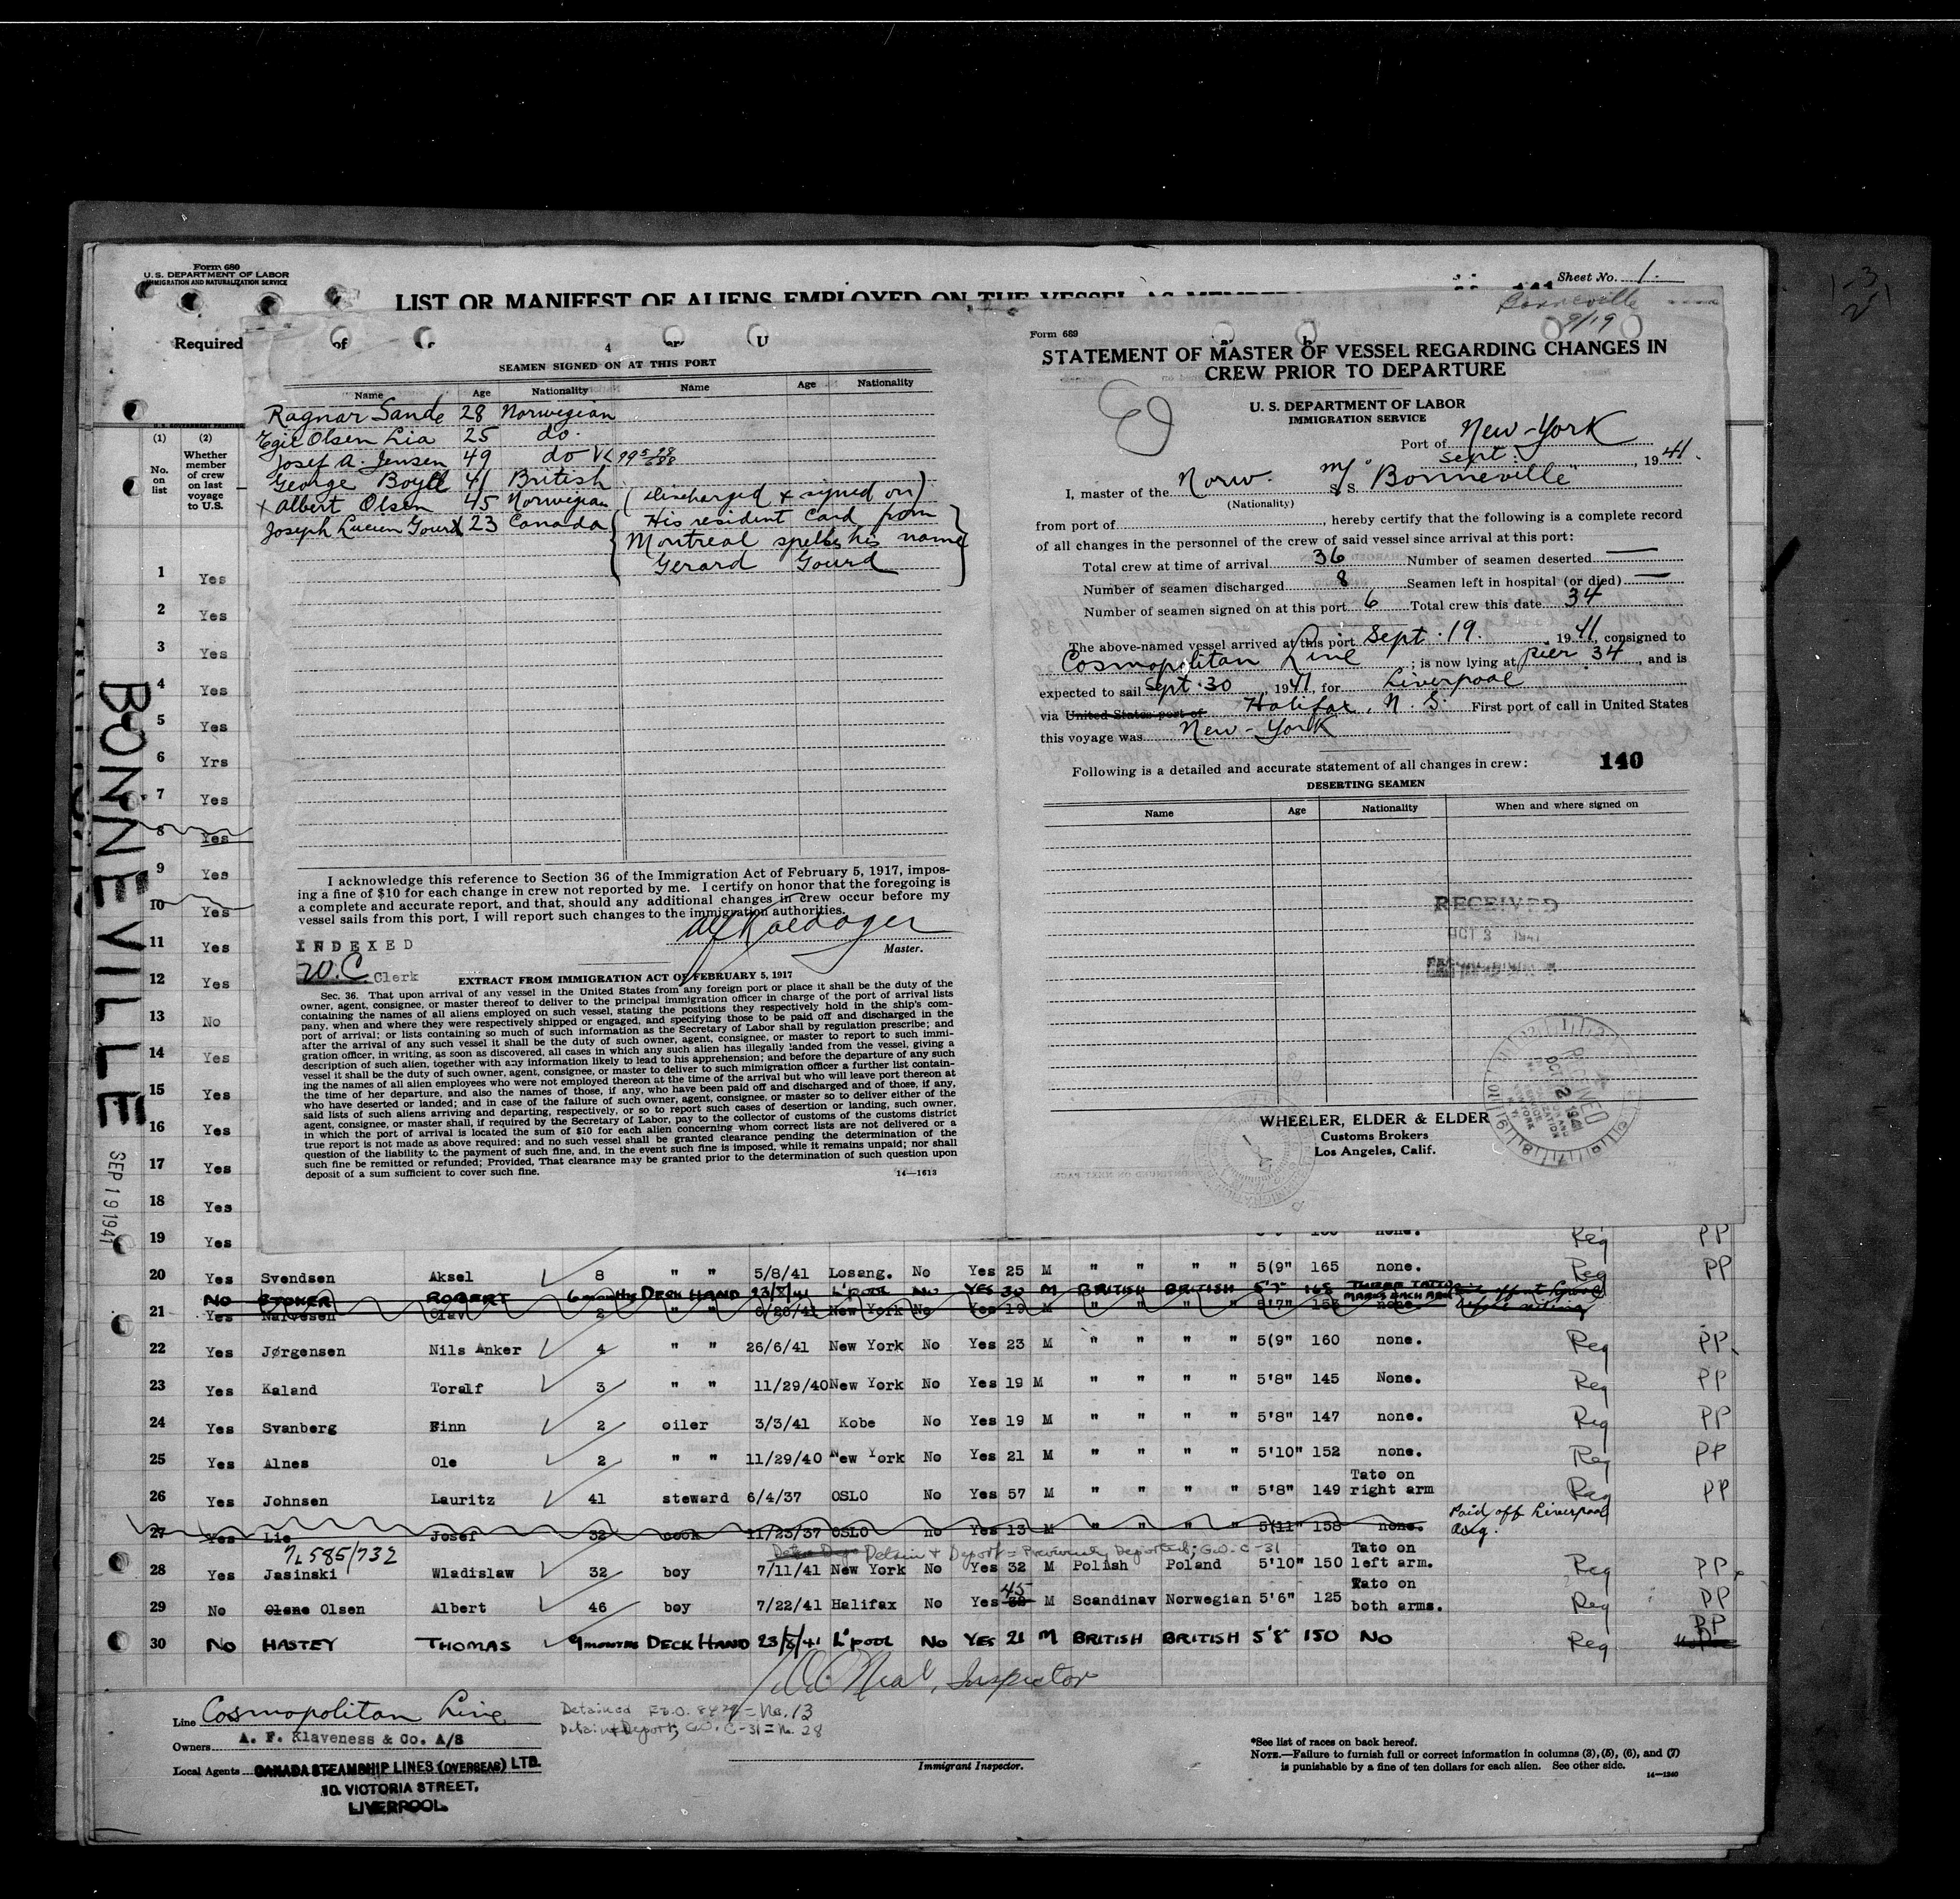 Form 680
U. S. DEPARTMENT OF LABOR
IMMIGRATION AND NATURALIZATION SERVICE
Sheet No. 1.
LIST OR MANIFEST OF ALIENS EMPLOYED ON THE VESSEL AS
Required
BONNEVILLE
SEP 19 1941
(1) (2)
No. on list
Whether member of crew on last voyage to U.S.
1 Yes
2 Yes
3 Yes
4 Yes
5 Yes
6 Yrs
7 Yes
8 Yes
9 Yes
10 Yes
11 Yes
12 Yes
13 No
14 Yes
15 Yes
16 Yes
17 Yes
18 Yes
19 Yes
4
SEAMEN SIGNED ON AT THIS PORT
Name Age Nationality Name Age Nationality
Ragnar Sande 28 Norwegian
Egil Olsen Lia 25 do.
Josef A. Jensen 49 do
George Boyd 41 British
x Albert Olsen 45 Norwegian (Discharged & signed on)
Joseph Lucien Gourd 23 Canada { His resident card from
Montreal spells his name
Gerard Gourd }
I acknowledge this reference to Section 36 of the Immigration Act of February 5, 1917, impos-
ing a fine of $10 for each change in crew not reported by me. I certify on honor that the foregoing is
a complete and accurate report, and that, should any additional changes in crew occur before my
vessel sails from this port, I will report such changes to the immigration authorities.
Master.
INDEXED
W.C. Clerk
EXTRACT FROM IMMIGRATION ACT OF FEBRUARY 5, 1917
Sec. 36. That upon arrival of any vessel in the United States from any foreign port or place it shall be the duty of the
owner, agent, consignee, or master thereof to deliver to the principal immigration officer in charge of the port of arrival lists
containing the names of all aliens employed on such vessel, stating the positions they respectively hold in the ship's com-
pany, when and where they were respectively shipped or engaged, and specifying those to be paid off and discharged in the
port of arrival; or lists containing so much of such information as the Secretary of Labor shall by regulation prescribe; and
after the arrival of any such vessel it shall be the duty of such owner, agent, consignee, or master to report to such immi-
gration officer, in writing, as soon as discovered, all cases in which any such alien has illegally landed from the vessel, giving a
description of such alien, together with any information likely to lead to his apprehension; and before the departure of any such
vessel it shall be the duty of such owner, agent, consignee, or master to deliver to such mimigration officer a further list contain-
ing the names of all alien employees who were not employed thereon at the time of the arrival but who will leave port thereon at
the time of her departure, and also the names of those, if any, who have been paid off and discharged and of those, if any,
who have deserted or landed; and in case of the failure of such owner, agent, consignee, or master so to deliver either of the
said lists of such aliens arriving and departing, respectively, or so to report such cases of desertion or landing, such owner,
agent, consignee, or master shall, if required by the Secretary of Labor, pay to the collector of customs of the customs district
in which the port of arrival is located the sum of $10 for each alien concerning whom correct lists are not delivered or a
true report is not made as above required; and no such vessel shall be granted clearance pending the determination of the
question of the liability to the payment of such fine, and, in the event such fine is imposed, while it remains unpaid; nor shall
such fine be remitted or refunded; Provided, That clearance may be granted prior to the determination of such question upon
deposit of a sum sufficient to cover such fine.
14—1613
Bonneville
9/19
Form 689
STATEMENT OF MASTER OF VESSEL REGARDING CHANGES IN
CREW PRIOR TO DEPARTURE
U. S. DEPARTMENT OF LABOR
IMMIGRATION SERVICE
Port of New-York
Sept. , 1941.
I, master of the Norw. m/s S. S. "Bonneville"
(Nationality)
from port of , hereby certify that the following is a complete record
of all changes in the personnel of the crew of said vessel since arrival at this port:
Total crew at time of arrival 36 Number of seamen deserted —
Number of seamen discharged 8 Seamen left in hospital (or died) —
Number of seamen signed on at this port 6 Total crew this date 34
The above-named vessel arrived at this port Sept. 19. , 1941, consigned to
Cosmopolitan Line ; is now lying at Pier 34 , and is
expected to sail Sept. 30 , 1941, for Liverpool
via United States port of Halifax, N. S. First port of call in United States
this voyage was New-York
Following is a detailed and accurate statement of all changes in crew:
140
DESERTING SEAMEN
Name Age Nationality When and where signed on
RECEIVED
OCT 3 1941
WHEELER, ELDER & ELDER
Customs Brokers
Los Angeles, Calif.
none. Req PP
20 Yes Svendsen Aksel 8 " " 5/8/41 Losang. No Yes 25 M " " " " 5(9" 165 none. Req PP
No STOKER ROBERT 6 months DECK HAND 23/8/41 L'POOL No YES 30 M BRITISH BRITISH 5'7" 165 THREE TATTOO MARKS EACH ARM
21 Yes Narvesen Olav 2 " " 6/20/41 New York No Yes 19 M " " " " 5'7" 155 none.
22 Yes Jørgensen Nils Anker 4 " " 26/6/41 New York No Yes 23 M " " " " 5(9" 160 none. Req PP
23 Yes Kaland Toralf 3 " " 11/29/40 New York No Yes 19 M " " " " 5'8" 145 None. Req PP
24 Yes Svanberg Finn 2 oiler 3/3/41 Kobe No Yes 19 M " " " " 5'8" 147 none. Req PP
25 Yes Alnes Ole 2 " " 11/29/40 New York No Yes 21 M " " " " 5'10" 152 none. Req PP
26 Yes Johnsen Lauritz 41 steward 6/4/37 OSLO No Yes 57 M " " " " 5'8" 149 Tato on right arm Req PP
27 Yes Lie Josef 32 cook 11/23/37 OSLO no Yes 13 M " " " " 5(11" 158 none. Paid off Liverpool Aug.
7L 585/732 Detain & Deport = Previously Deported; G.O. C-31
28 Yes Jasinski Wladislaw 32 boy 7/11/41 New York No Yes 32 M Polish Poland 5'10" 150 Tato on left arm. Req PP
29 No Olene Olsen Albert 46 boy 7/22/41 Halifax No Yes 45 M Scandinav Norwegian 5'6" 125 Tato on both arms. Req PP
30 No HASTEY THOMAS 9 months DECK HAND 23/8/41 L'POOL No YES 21 M BRITISH BRITISH 5'8" 150 No Req PP
Inspector
Line Cosmopolitan Line
Owners A. F. Klaveness & Co. A/S
Local Agents CANADA STEAMSHIP LINES (OVERSEAS) LTD.
10. VICTORIA STREET,
LIVERPOOL.
Detained = No. 13
Detain & Deport; G.O. C-31 = No. 28
Immigrant Inspector.
*See list of races on back hereof.
NOTE.—Failure to furnish full or correct information in columns (3), (5), (6), and (7)
is punishable by a fine of ten dollars for each alien. See other side.
14—1240